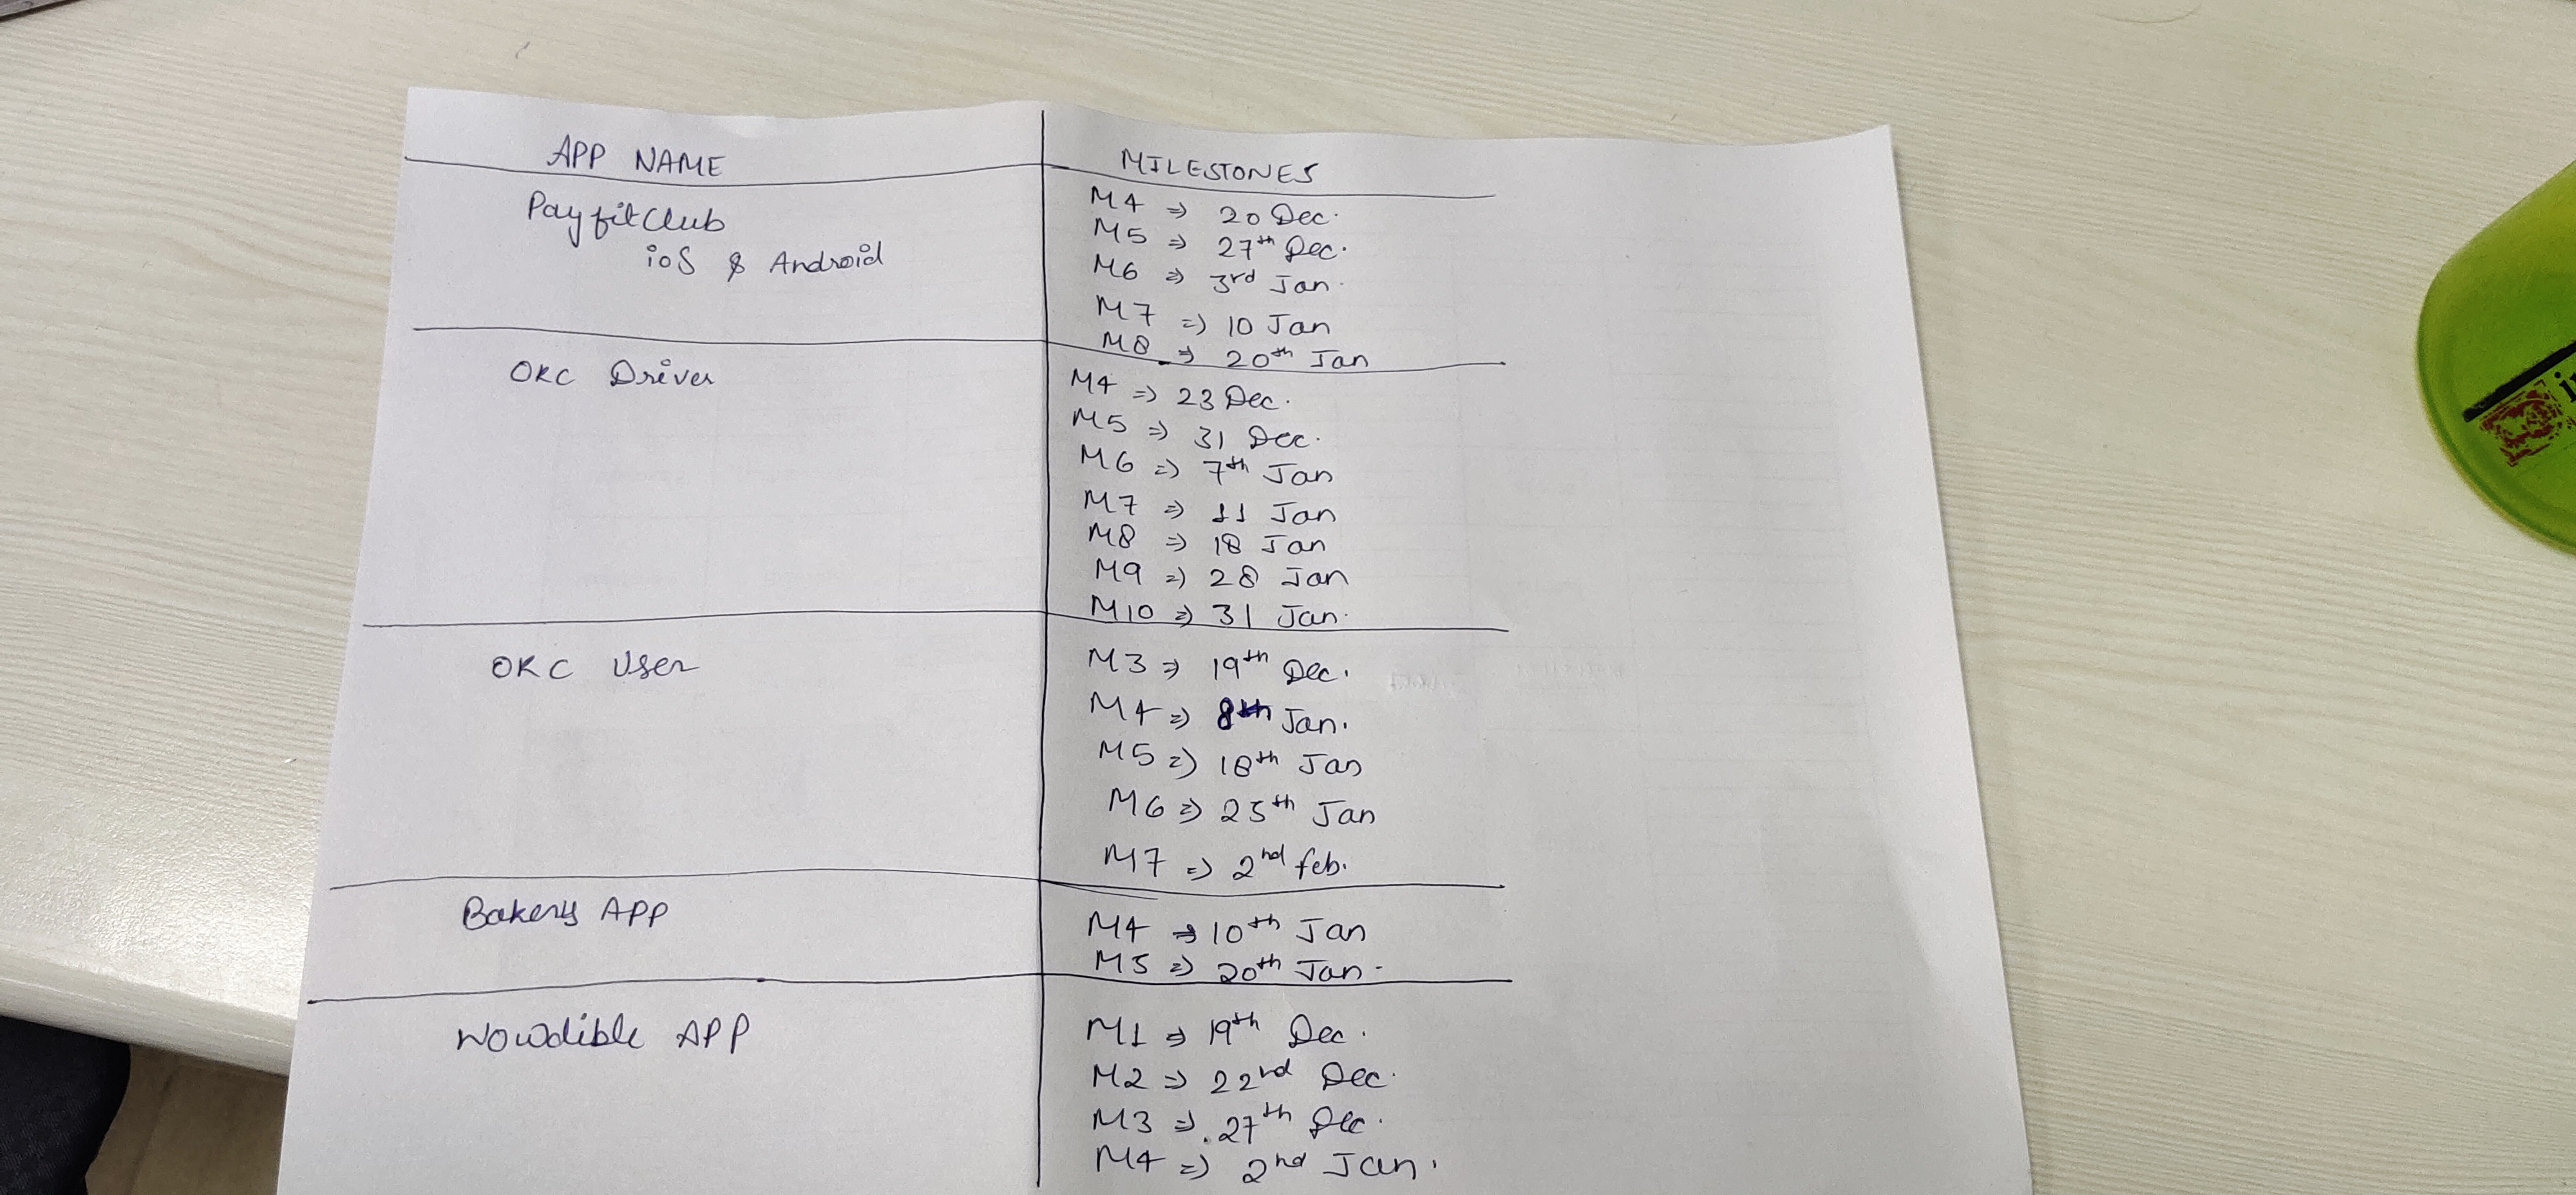 APP NAME
MILESTONES
PayfitClub
ioS & Android
M4 => 20 Dec.
M5 => 27th Dec.
M6 => 3rd Jan.
M7 => 10 Jan
M8 => 20th Jan
OKC Driver
M4 => 23 Dec.
M5 => 31 Dec.
M6 => 7th Jan
M7 => 11 Jan
M8 => 18 Jan
M9 => 28 Jan
M10 => 31 Jan.
OKC User
M3 => 19th Dec.
M4 => 8th Jan.
M5 => 18th Jan
M6 => 25th Jan
M7 => 2nd feb.
Bakery APP
M4 => 10th Jan
M5 => 20th Jan.
Wowdible APP
M1 => 19th Dec.
M2 => 22nd Dec.
M3 => 27th Dec.
M4 => 2nd Jan.